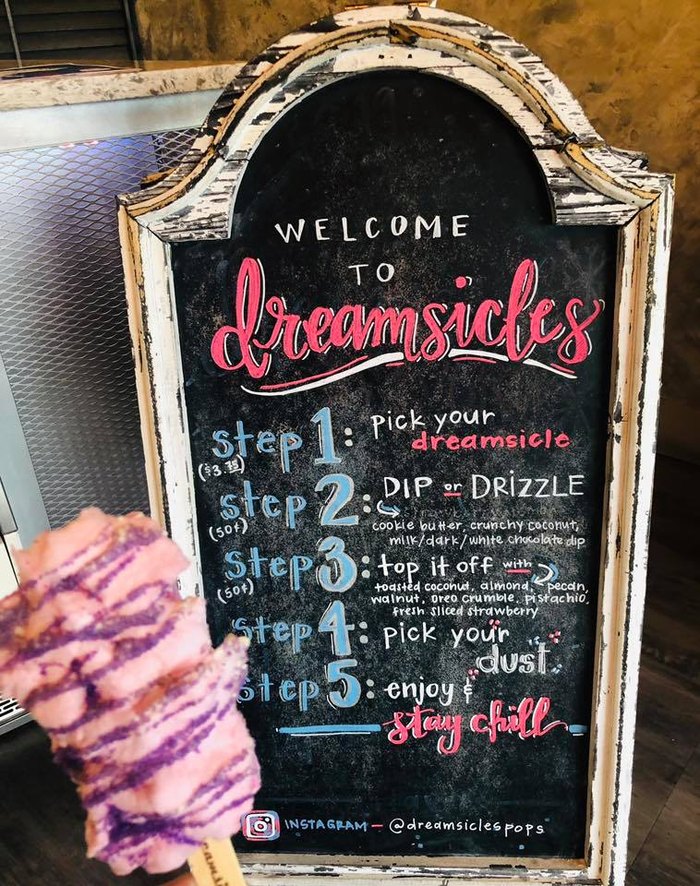 WELCOME
TO
dreamsicles
step 1: pick your
dreamsicle
($3.75)
step 2: DIP or DRIZZLE
(50¢)
cookie butter, crunchy coconut,
milk/dark/white chocolate dip
step 3: top it off with
(50¢)
toasted coconut, almond, pecan,
walnut, oreo crumble, pistachio,
fresh sliced strawberry
step 4: pick your
dust
step 5: enjoy &
stay chill
INSTAGRAM — @dreamsiclespops